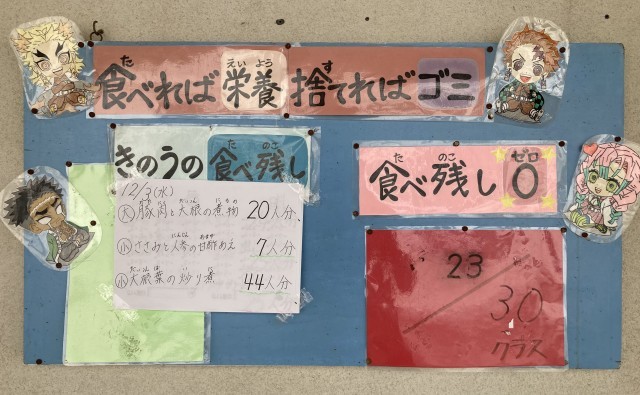 食べれば栄養 捨てればゴミ
きのうの 食べ残し
12/3(水)
大 豚肉と大根の煮物 20人分
小 ささみと人参の甘酢あえ 7人分
小 大根葉の炒り煮 44人分
食べ残し 0
23/30
クラス